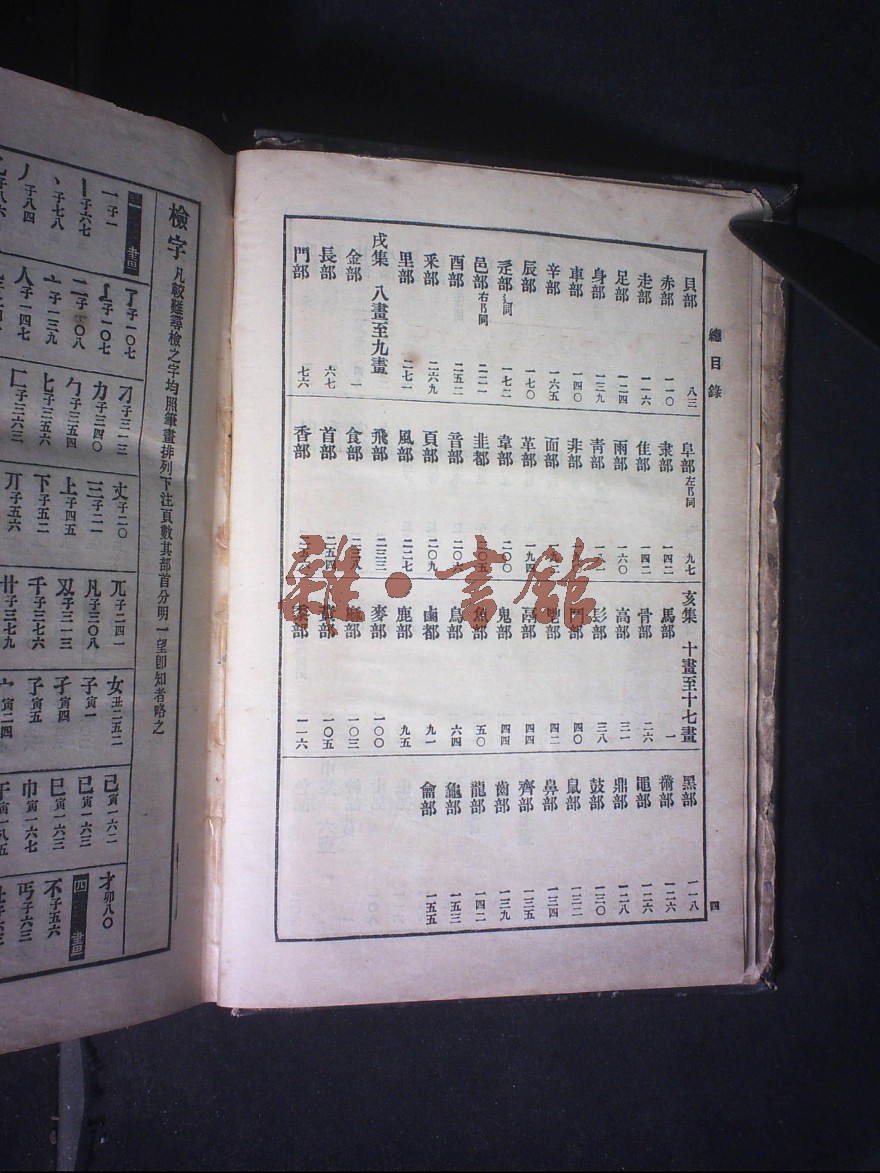 總目錄
貝部 八三
赤部 一一〇
走部 一一六
足部 一二四
身部 一三九
車部 一四〇
辛部 一六五
辰部 一七〇
辵部 辶同 一七二
邑部 右阝同 二二一
酉部 二五二
釆部 二六九
里部 二七一
戌集 八畫至九畫
金部 一
長部 六七
門部 七六
阜部 左阝同 九七
隶部 一四二
隹部 一四二
雨部 一六〇
靑部
非部
面部
革部 一九四
韋部 二〇〇
韭部 二〇五
音部 二〇六
頁部 二〇九
風部 二二七
飛部 二三三
食部 二三八
首部 二五四
香部
亥集 十畫至十七畫
馬部 一
骨部 二六
高部 三一
髟部 三八
鬥部 四〇
鬯部 四二
鬲部 四四
鬼部 四四
魚部 五〇
鳥部 六四
鹵部 九一
鹿部 九五
麥部 一〇〇
麻部 一〇三
黃部 一〇五
黍部 一一六
黑部 一一八
黹部 一二六
黽部 一二六
鼎部 一二八
鼓部 一三〇
鼠部 一三二
鼻部 一三四
齊部 一三五
齒部 一三九
龍部 一四二
龜部 一五三
龠部 一五五
四
檢字 凡較難尋檢之字均照筆畫排列下注頁數其部首分明一望卽知者略之
畫
一 子一
丨 子六七
丶 子七八
丿 子八四
了 子一〇七
亅 子一〇七
二 子一〇八
亠 子一三九
人 子一四七
刁 子三一三
力 子三四〇
勹 子三五四
匕 子三五六
匚 子三六三
丈 子二〇
三 子二一
上 子四五
下 子五二
丌 子五六
兀 子二四一
凡 子三〇八
刄 子三一三
千 子三七七
廿 子三七九
女 丑二五二
子 寅一
孑 寅四
孒 寅五
宀 寅二四
己 寅一六二
已 寅一六三
巳 寅一六三
巾 寅一六七
干 寅一八五
才 卯八〇
四畫
不 子五六
丐 子六三
雜·書館